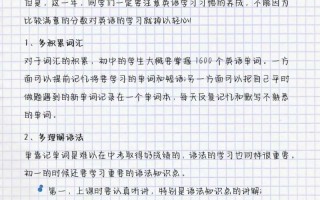 但是，这一年，同学们一定要注意英语学习习惯的养成，不能因为
比较满意的分数对英语的学习就掉以轻心！
1、多积累词汇
对于词汇的积累，初中的学生大概要掌握1600个英语单词。一方
面可以提前记忆将要学习的单词和短语；另一方面可以把自己平时
做题遇到的新单词记录在一个单词本，每天反复记忆和默写不熟悉
的单词。
2、多理解语法
单靠记单词是难以在中考取得好成绩的，语法的学习也同样很重要，
初一的时候还要学习重要的语法知识点。
第一，上课时要认真听讲，特别是语法知识点的讲解；